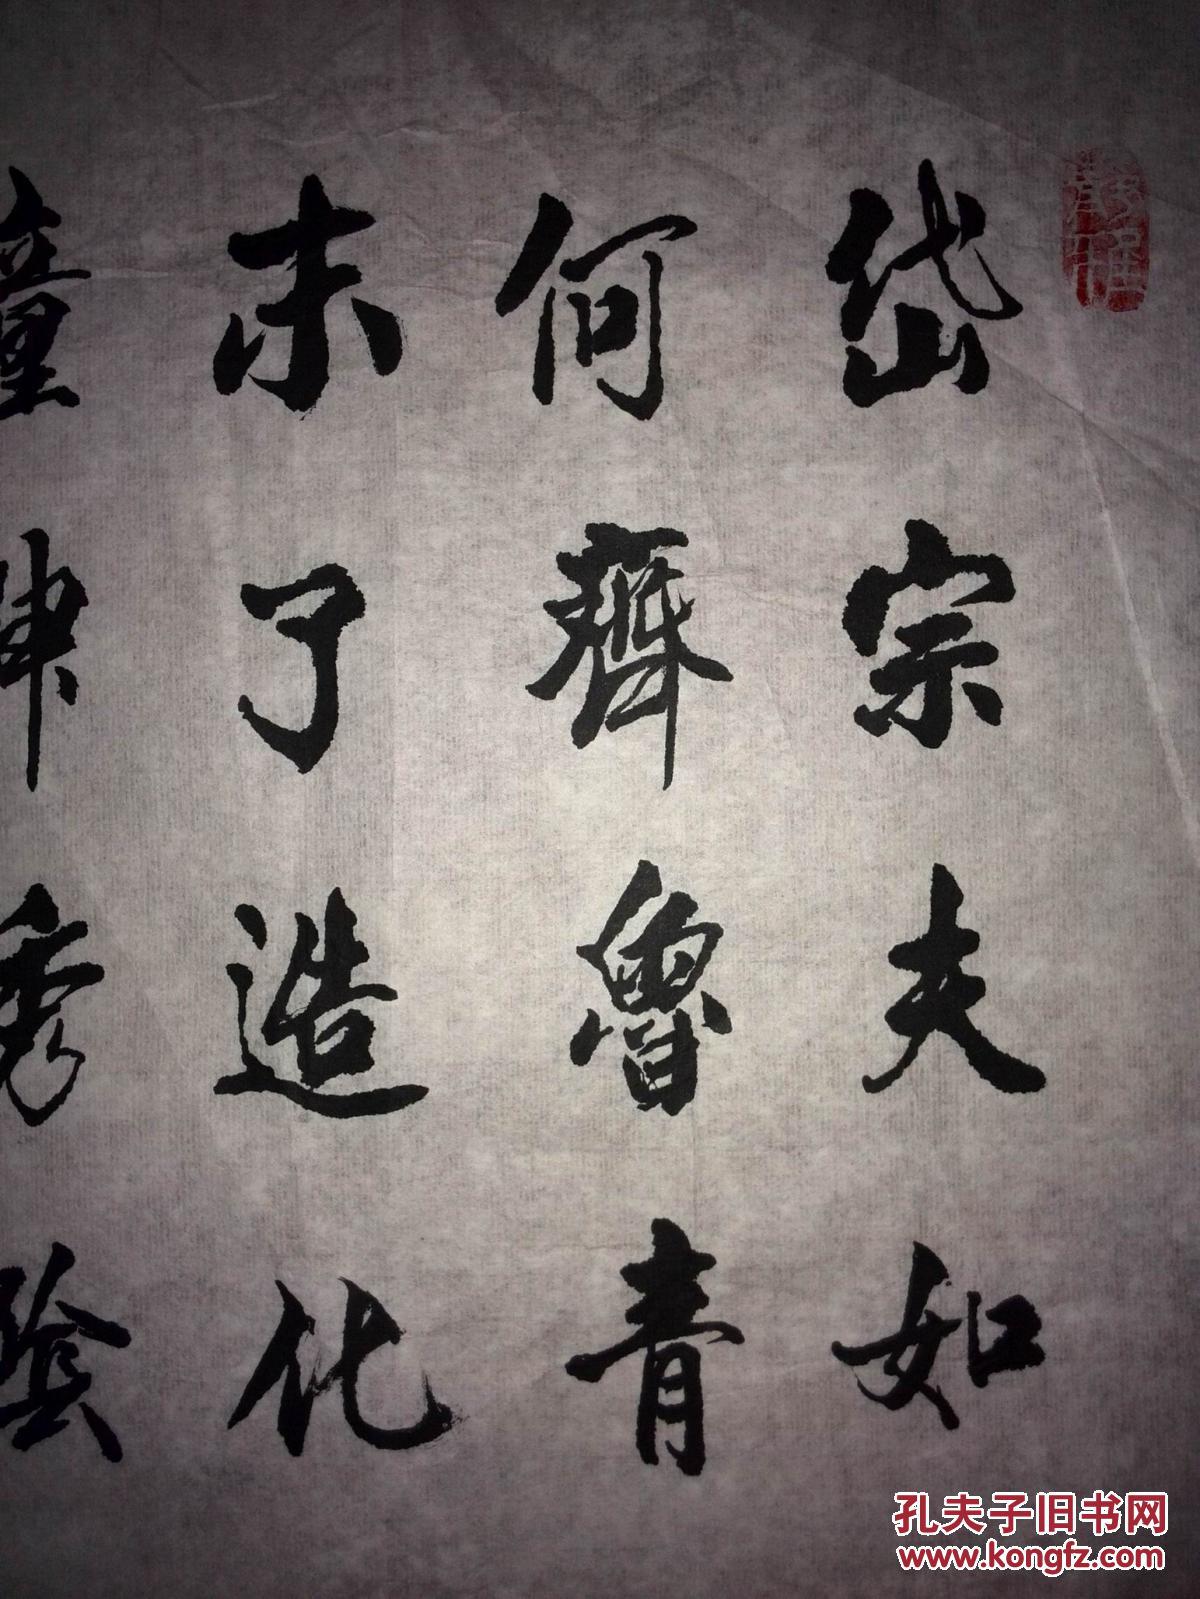 岱宗夫如
何齊魯青
未了造化
鍾神秀陰
孔夫子旧书网
www.kongfz.com